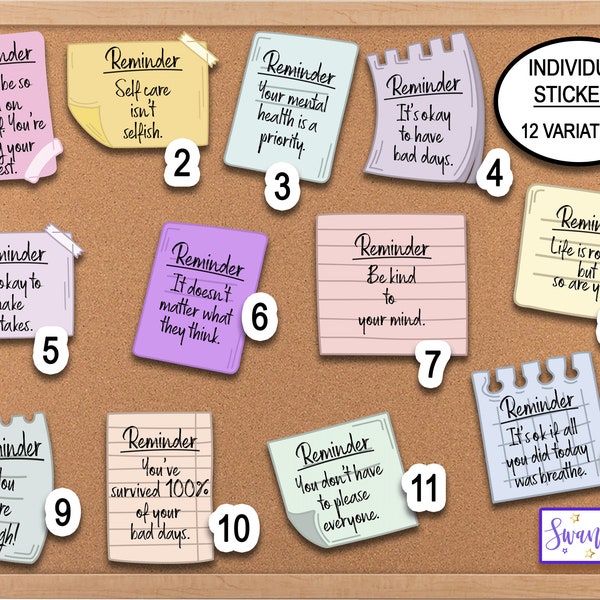 be so
on
You're
your
Reminder
Self care
isn't
selfish.
2
Reminder
Your mental
health is a
priority.
3
Reminder
It's okay
to have
bad days.
4
INDIVIDU
STICKE
12 VARIAT
Reminder
okay to
5
Reminder
It doesn't
matter what
they think.
6
Reminder
Be kind
to
your mind.
7
Life is
but
so are
Reminder
9
Reminder
You've
survived 100%
of your
bad days.
10
Reminder
You don't have
to please
everyone.
11
Reminder
It's ok if all
you did today
was breathe.
Swan